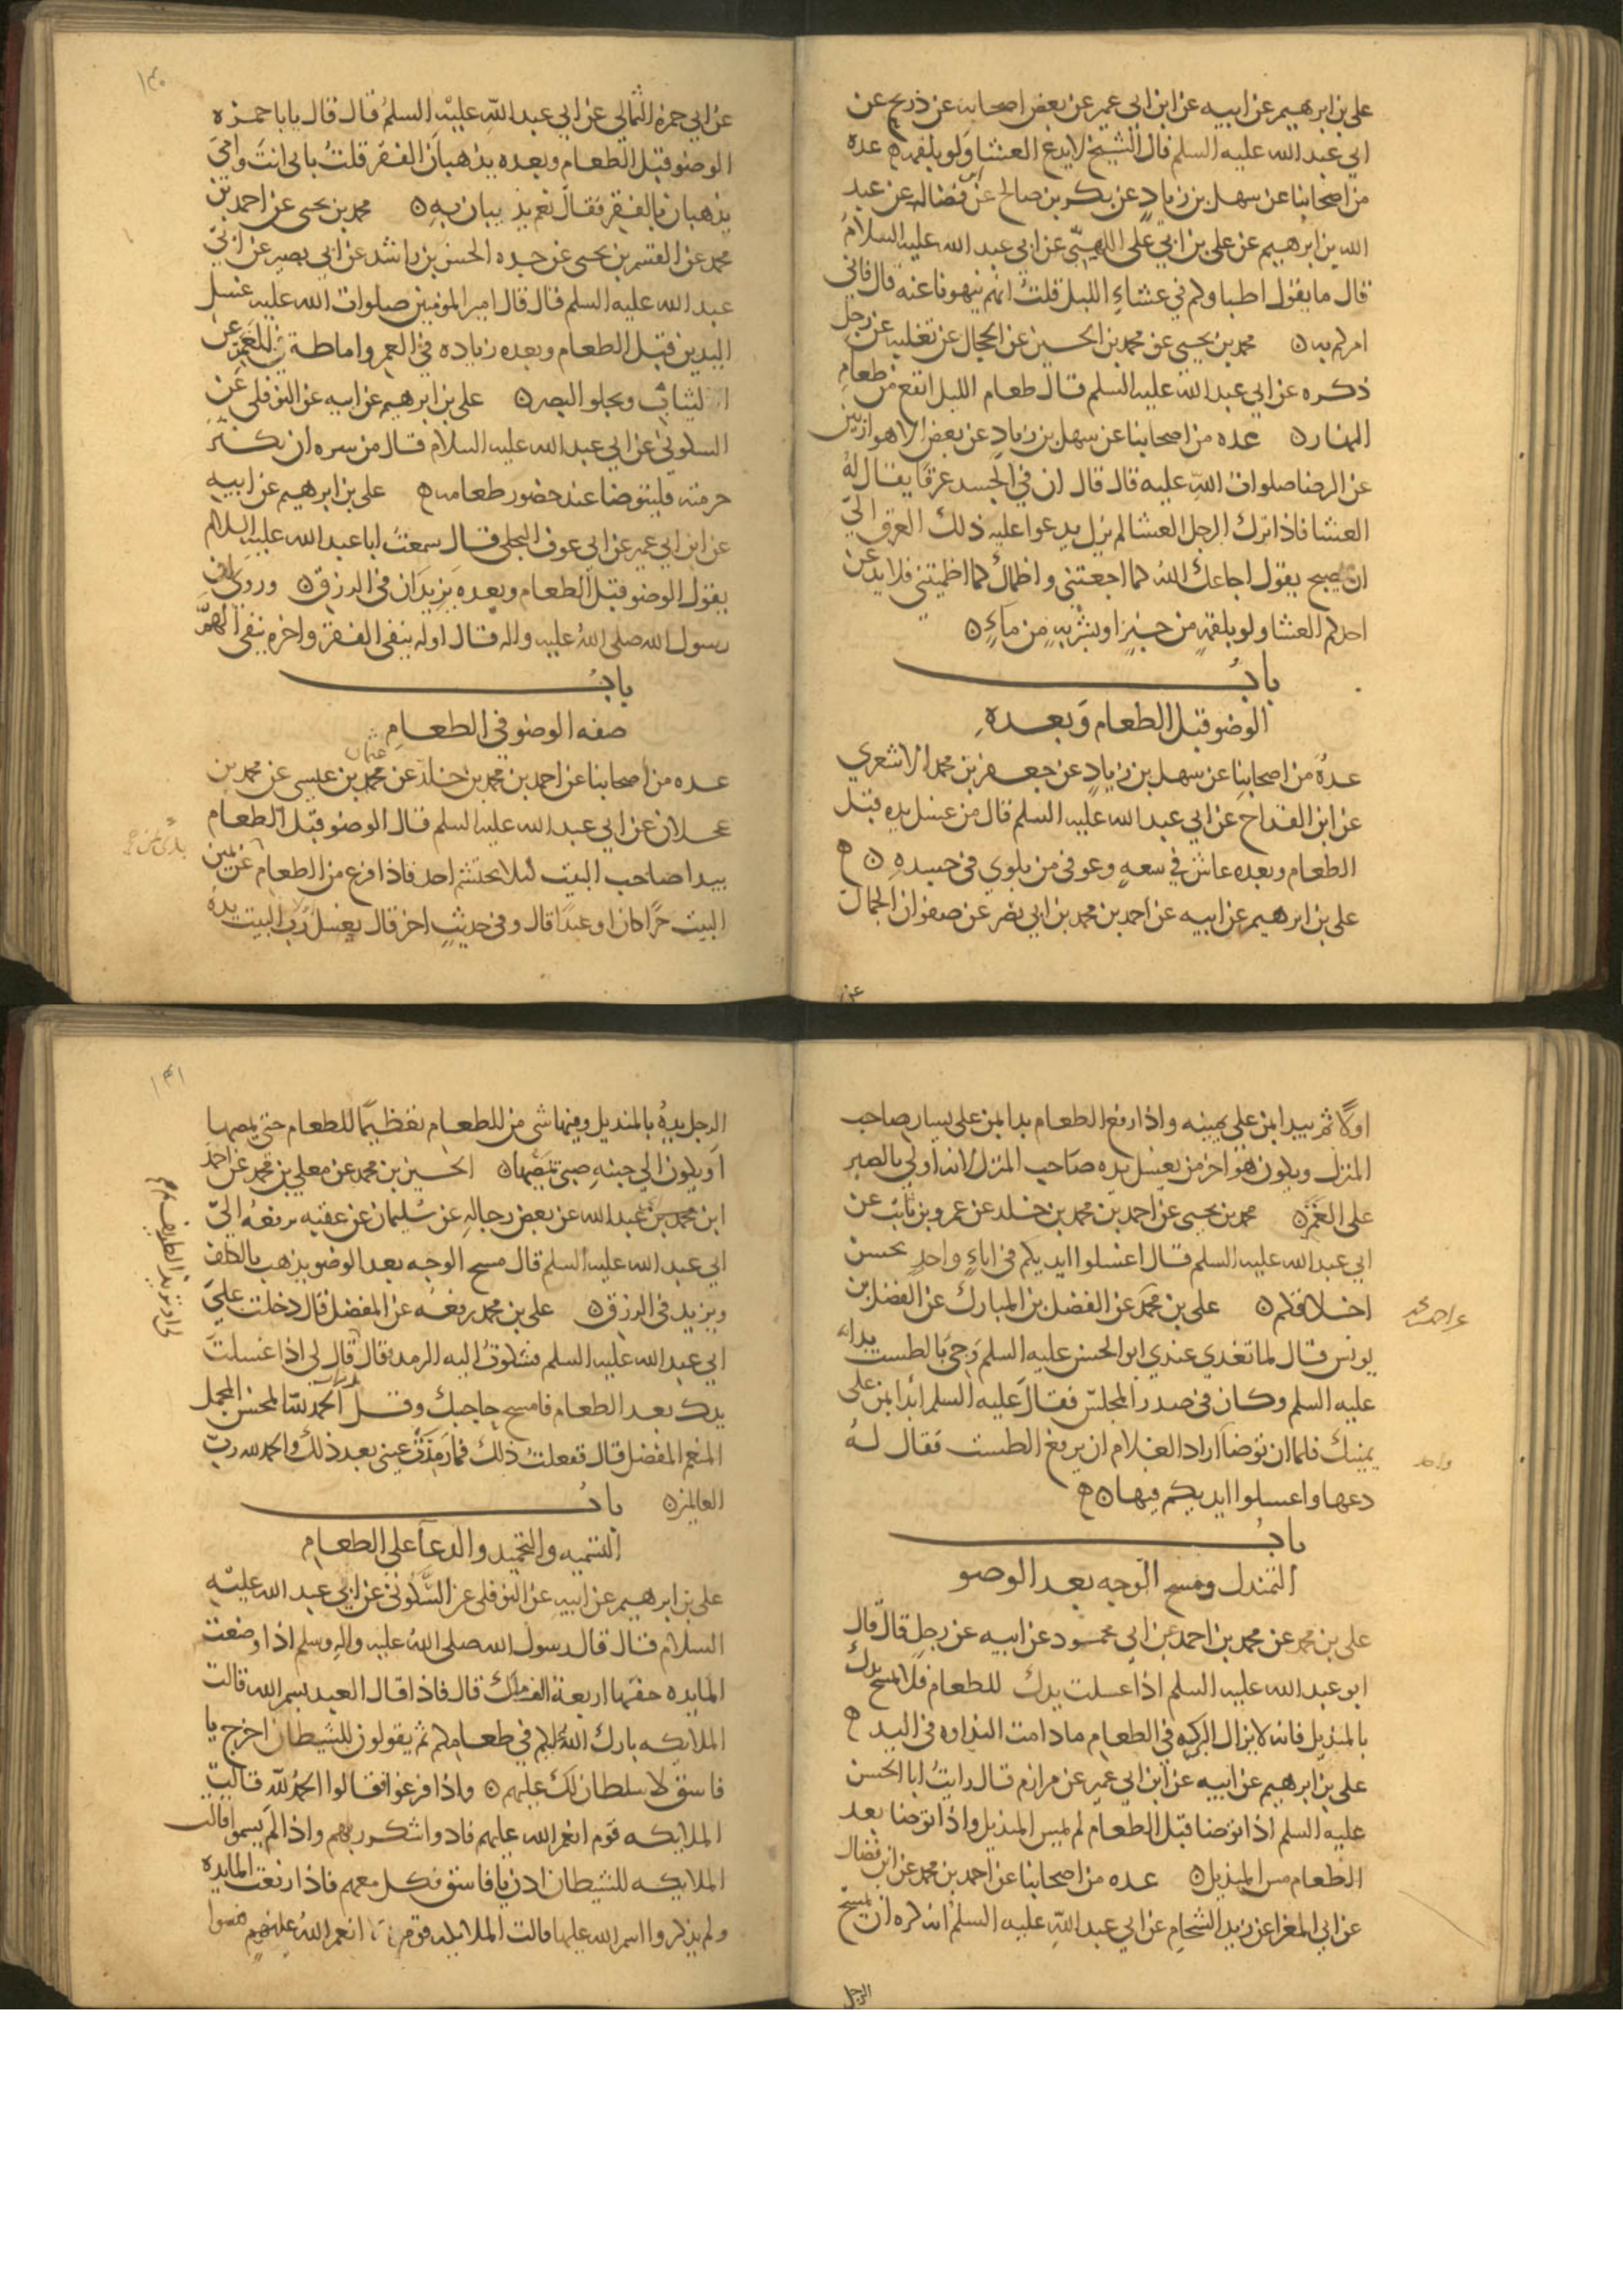 علي بن ابرهيم عن ابيه عن ابن ابي عمير عن بعض اصحابه عن ذريح عن
ابي عبد الله عليه السلم قال الشيخ لا يدع العشا ولو بلقمه ه عده
من اصحابنا عن سهل بن زياد عن بكر بن صالح عن ابن فضاله عن عبد
الله بن ابرهيم عن علي بن ابي علي اللهبي عن ابي عبد الله عليه السلام
قال ما يقول اطباوكم في عشاء الليل قلت انهم ينهونا عنه قال فاني
امركم به ن محمد بن يحيى عن محمد بن الحسين عن الحجال عن ثعلبه عن رجل
ذكره عن ابي عبد الله عليه السلم قال طعام الليل انفع من طعام
النهار ن عده من اصحابنا عن سهل بن زياد عن بعض الاهوازيين
عن الرضا صلوات الله عليه قال قال ان في الجسد عرقا يقال له
العشا فاذا ترك الرجل العشا لم يزل يدعوا عليه ذلك العرق الى
ان يصبح يقول اجاعك الله كما اجعتني واظماك كما اظميتني فلا يدعن
احدكم العشا ولو بلقمة من خبز او بشربه من ماء ن
باب
الوضو قبل الطعام وبعده
عدة من اصحابنا عن سهل بن زياد عن جعفر بن محمد الاشعري
عن ابن القداح عن ابي عبد الله عليه السلم قال من غسل يده قبل
الطعام وبعده عاش في سعه وعوفي من بلوي في جسده ن ه
علي بن ابرهيم عن ابيه عن احمد بن محمد بن ابي نصر عن صفوان الجمال
عن
١٣٠
عن ابي حمزه الثمالي عن ابي عبد الله عليه السلم قال قال يا با حمزه
الوضو قبل الطعام وبعده يذهبان الفقر قلت بابي انت وامي
يذهبان بالفقر فقال نعم يذيبان به ن محمد بن يحيى عن احمد بن
محمد عن القسم بن يحيى عن جده الحسن بن راشد عن ابي بصير عن ابي
عبد الله عليه السلم قال قال امير المومنين صلوات الله عليه غسل
اليدين قبل الطعام وبعده زياده في العمر واماطة للغمر عن
الثياب ويجلو البصر ن علي بن ابرهيم عن ابيه عن النوفلي عن
السكوني عن ابي عبد الله عليه السلام قال من سره ان يكثر
خير بيته فليتوضا عند حضور طعامه ه علي بن ابرهيم عن ابيه
عن ابن ابي عمير عن ابي عوف البجلي قال سمعت ابا عبد الله عليه السلام
يقول الوضو قبل الطعام وبعده يزيدان في الرزق ن وروي ان
رسول الله صلى الله عليه واله قال اوله ينفي الفقر واخره ينفي الهم
باب
صفه الوضو في الطعام
عثمان
عده من اصحابنا عن احمد بن محمد بن خلد عن محمد بن عيسى عن محمد بن
عجلان عن ابي عبد الله عليه السلم قال الوضو قبل الطعام
يبدا صاحب البيت لئلا يحتشم احد فاذا فرغ من الطعام عن يمين
البيت حرا كان او عبدا قال وفي حديث اخر قال يغسل رب البيت يده
اولا ثم يبدا بمن على يمينه واذا رفع الطعام بدا بمن على يسار صاحب
المنزل ويكون هو اخر من يغسل يده صاحب المنزل لانه اولى بالصبر
على الغمز ن محمد بن يحيى عن احمد بن محمد بن خلد عن عمرو بن ثابت عن
ابي عبد الله عليه السلم قال اغسلوا ايديكم في اناء واحد يحسن
اخلاقكم ن علي بن محمد عن الفضل بن المبارك عن الفضل بن
يونس قال لما تغدى عندي ابو الحسن عليه السلم وجي بالطست بدا به
عليه السلم وكان في صدر المجلس فقال عليه السلم ابدا بمن على
يمينك فلما ان توضا اراد الغلام ان يرفع الطست فقال له
دعها واغسلوا ايديكم فيها ن ه
باب
التمندل ومسح الوجه بعد الوضو
علي بن محمد عن محمد بن احمد عن ابي محمود عن ابيه عن رجل قال قال
ابو عبد الله عليه السلم اذا غسلت يدك للطعام فلا تمسح يدك
بالمنديل فانه لا يزال البركه في الطعام ما دامت النداوه في اليد ه
علي بن ابرهيم عن ابيه عن ابن ابي عمير عن مرازم قال رايت ابا الحسن
عليه السلم اذا توضا قبل الطعام لم يمس المنديل واذا توضا بعد
الطعام مس المنديل ن عده من اصحابنا عن احمد بن محمد عن ابن فضال
عن ابي المغرا عن زيد الشحام عن ابي عبد الله عليه السلم انه كره ان يمسح
الرجل
١٣١
الرجل يده بالمنديل وفيها شي من للطعام تعظيما للطعام حتى يمصها
او يكون الى جنبه صبي يمصها ن الحسين بن محمد عن معلي بن محمد عن احمد
ابن محمد بن عبد الله عن بعض رجاله عن سليمان عن عقبه يرفعه الى
ابي عبد الله عليه السلم قال مسح الوجه بعد الوضو يذهب بالكلف
ويزيد في الرزق ن علي بن محمد رفعه عن المفضل قال دخلت على
ابي عبد الله عليه السلم فشكوت اليه الرمد فقال قال لي اذا غسلت
يدك بعد الطعام فامسح حاجبك وقل الحمد لله المحسن المجمل
المنعم المفضل قال ففعلت ذلك فما رمدت عيني بعد ذلك والحمد لله رب
العالمين ن باب
التسميه والتحميد والدعا على الطعام
علي بن ابرهيم عن ابيه عن النوفلي عن السكوني عن ابي عبد الله عليه
السلام قال قال رسول الله صلى الله عليه واله وسلم اذا وضعت
المايده حفتها اربعة الف ملك قال فاذا قال العبد بسم الله قالت
الملايكه بارك الله لكم في طعامكم ثم يقولون للشيطان اخرج يا
فاسق لا سلطان لك عليهم ن واذا فرغوا فقالوا الحمد لله قالت
الملايكه قوم انعم الله عليهم فادوا شكر ربهم واذا لم يسموا قالت
الملايكه للشيطان ادن يا فاسق فكل معهم فاذا رفعت المايده
ولم يذكروا اسم الله عليها قالت الملايكه قوم انعم الله عليهم فنسوا